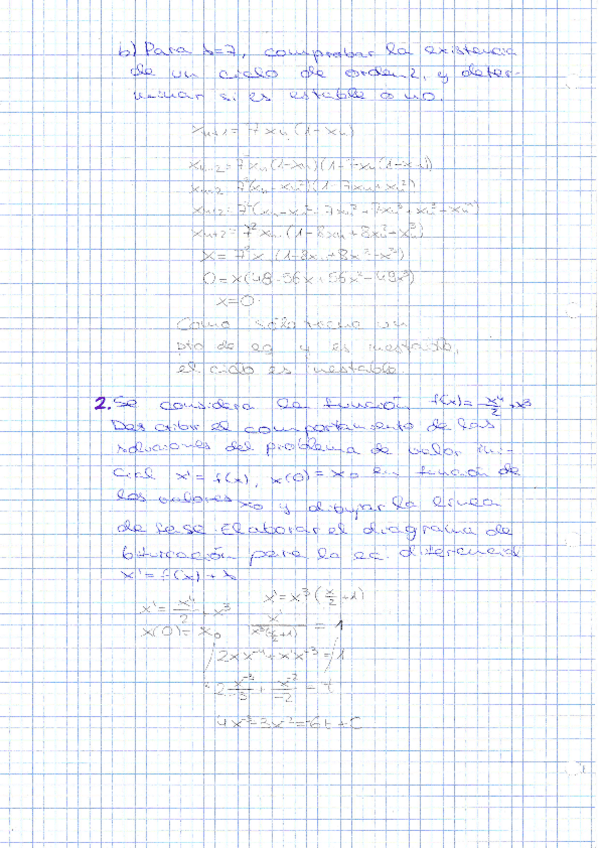 b) Para b=7, comprobar la existencia
de un ciclo de orden 2, y deter-
minar si es estable o no.
Xn+1 = 7Xn(1-Xn)
Xn+2 = 7²Xn(1-Xn)(1-7Xn(1-Xn))
Xn+2 = 7²Xn(1-8Xn+8Xn²-Xn³)
X = 7²X(1-8X+8X²-X³)
0=X(48-56X+56X²-49X³)
X=0.
Como sólo tiene un
pto de eq y es inestable,
el ciclo es inestable.
2. Se considera la función f(x) = x⁴/2 + x³
Describir el comportamiento de las
soluciones del problema de valor ini-
cial x' = f(x), x(0) = x₀ en función de
los valores x₀ y dibujar la línea
de fase. Elaborar el diagrama de
bifurcación para la ec. diferencial
x' = f(x) + b
x' = x⁴/2 + x³ x' = x³(x/2 + 1)
x(0) = x₀ x'/(x³(x/2+1)) = 1
2x x⁻⁴ + x'x⁻³ = 1
2 x⁻³/-3 + x⁻²/-2 = t
4x⁻³ 3x⁻² = -6t + C